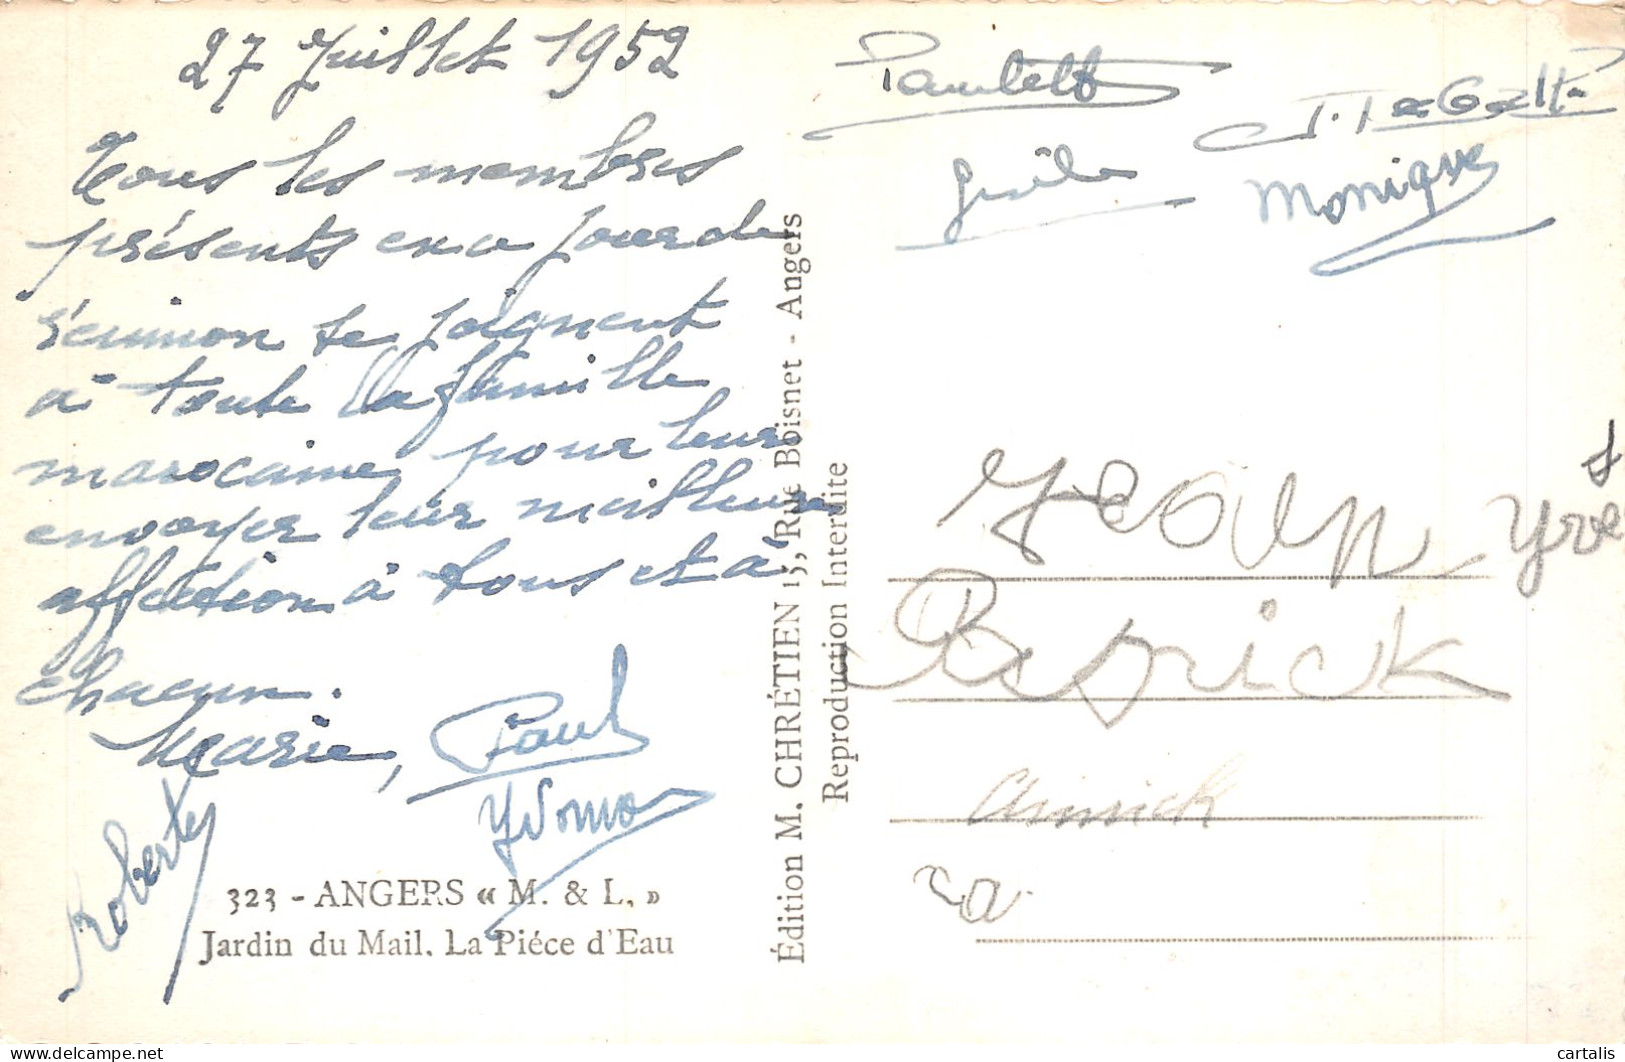 27 Juillet 1952
Tous les membres
présents en ce jour de
réunion se joignent
à toute la famille
marocaine pour leur
envoyer leur meilleure
affection à tous et à
chacun.
Marie, Paul
Yvonne
Roberte
323 - ANGERS « M. & L. »
Jardin du Mail. La Piéce d'Eau
Édition M. CHRÉTIEN 15, Rue Boisnet - Angers
Reproduction Interdite
Paulette
Monique
Jean Yves
Annick